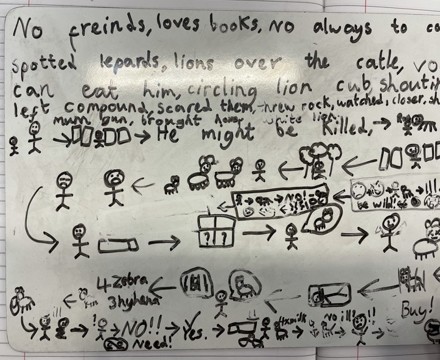 No freinds, loves books, No always to co
spotted lepards, lions over the catle, vo
can eat him, circling lion cub, shoutin
left compound, scared them, threw rock, watched, closer, sh
mum gun, brought home, white lion
He might be killed,
NO!
be wild!
? ?
4 zebra
3 hyhena
Buy!
NO!! Yes.
Need!
no ill!